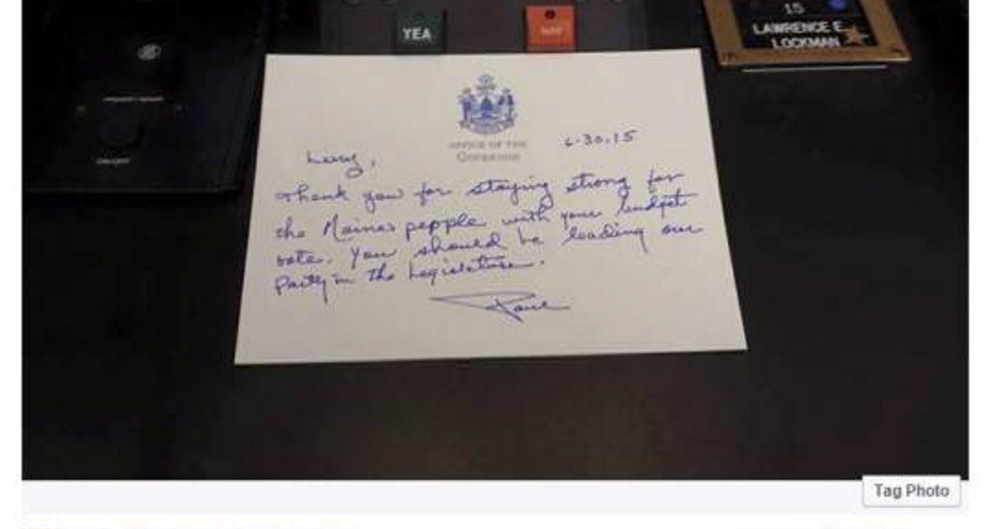 15
LAWRENCE E.
LOCKMAN
YEA
NAY
OFFICE OF THE
GOVERNOR
6-30-15
Larry,
Thank you for staying strong for
the Maine people with your budget
vote. You should be leading our
Party in the Legislature.
Paul
Tag Photo